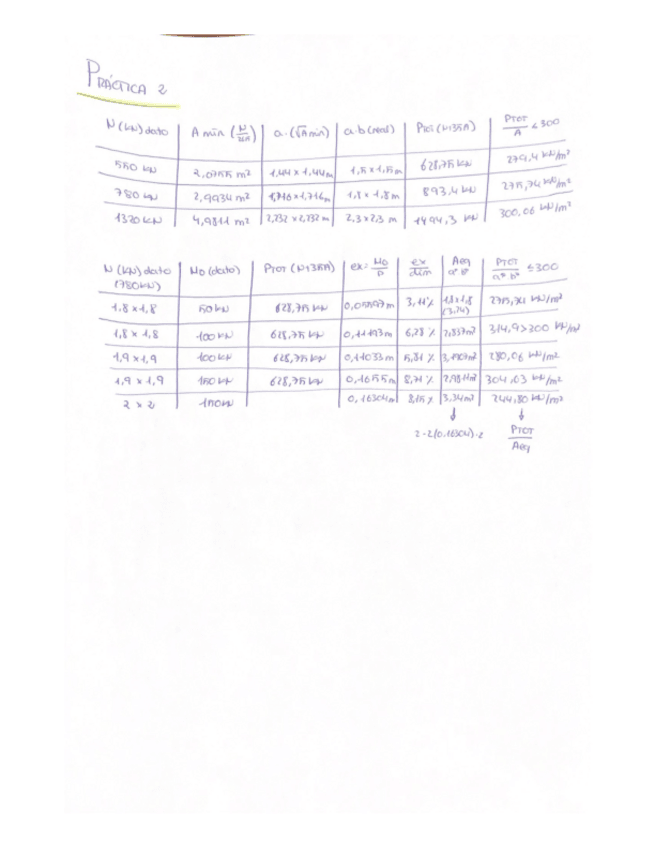 PRÁCTICA 2
N (kN) dato | A min (N/265) | a·(√Amin) | a·b (real) | PTOT (N+35A) | PTOT/A < 300
550 kN | 2,0755 m² | 1,44 x 1,44 m | 1,5 x 1,5 m | 628,75 kN | 279,4 kN/m²
780 kN | 2,9934 m² | 1,716 x 1,716 m | 1,8 x 1,8 m | 893,4 kN | 275,74 kN/m²
1320 kN | 4,9811 m² | 2,232 x 2,232 m | 2,3 x 2,3 m | 1494,3 kN | 300,06 kN/m²
N (kN) dato (780kN) | Mo (dato) | PTOT (N+35A) | ex = Mo/P | ex/dim | Aeq a* b* | PTOT/a* b* ≤ 300
1,8 x 1,8 | 50 kN | 628,75 kN | 0,05597 m | 3,11% | 1,8 x 1,8 (3,24) | 275,74 kN/m²
1,8 x 1,8 | 100 kN | 628,75 kN | 0,11193 m | 6,28 % | 2,837 m² | 314,9 > 300 kN/m²
1,9 x 1,9 | 100 kN | 628,75 kN | 0,11033 m | 5,81 % | 3,1907 m² | 280,06 kN/m²
1,9 x 1,9 | 150 kN | 628,75 kN | 0,1655 m | 8,71 % | 2,9811 m² | 304,03 kN/m²
2 x 2 | 150 kN | 0,16304 m | 8,15 % | 3,34 m² | 244,80 kN/m²
↓ ↓
2-2(0,16304)·2 PTOT/Aeq